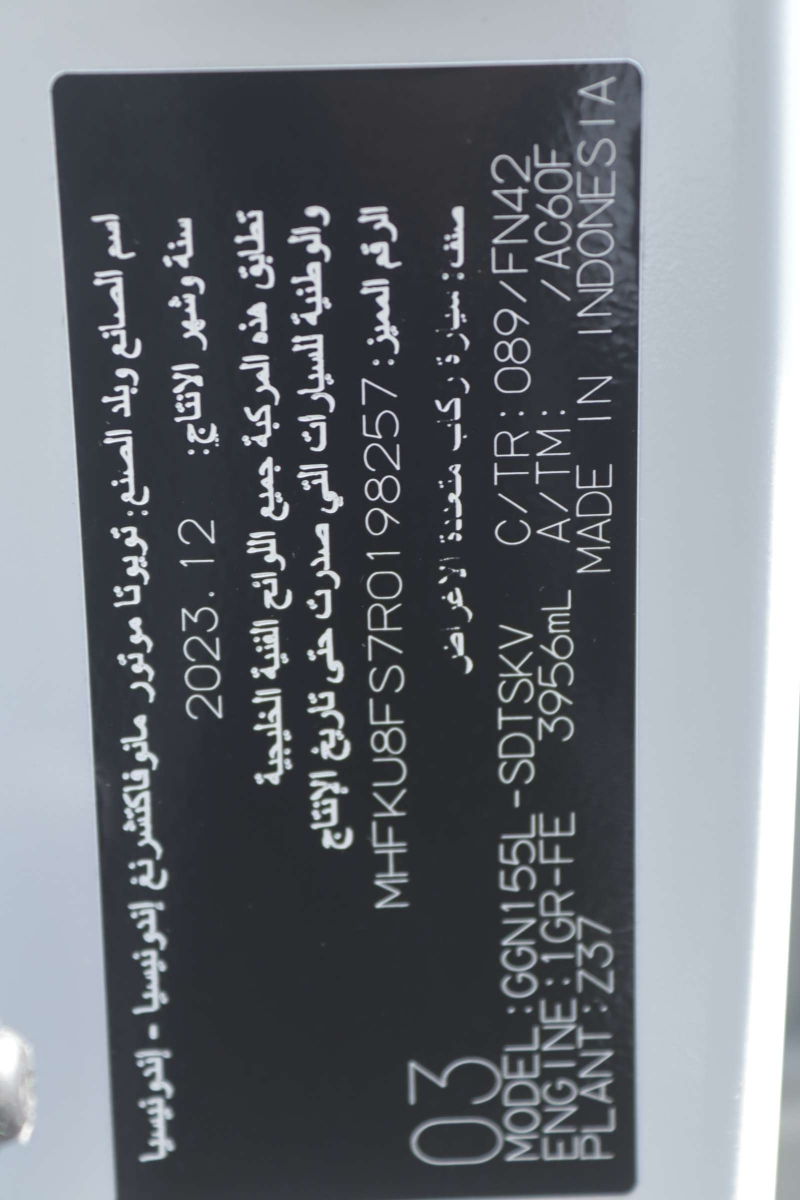 اسم الصانع وبلد الصنع: تويوتا موتور مانوفاكتشرنغ إندونيسيا - إندونيسيا
سنة وشهر الانتاج: 2023.12
تطابق هذه المركبة جميع اللوائح الفنية الخليجية
والوطنية للسيارات التي صدرت حتى تاريخ الإنتاج
الرقم المميز: MHFKU8FS7R0198257
صنف: سيارة ركاب متعددة الاغراض
03
MODEL:GGN155L-SDTSKV C/TR:089/FN42
ENGINE:1GR-FE 3956mL A/TM: /AC60F
PLANT:Z37 MADE IN INDONESIA